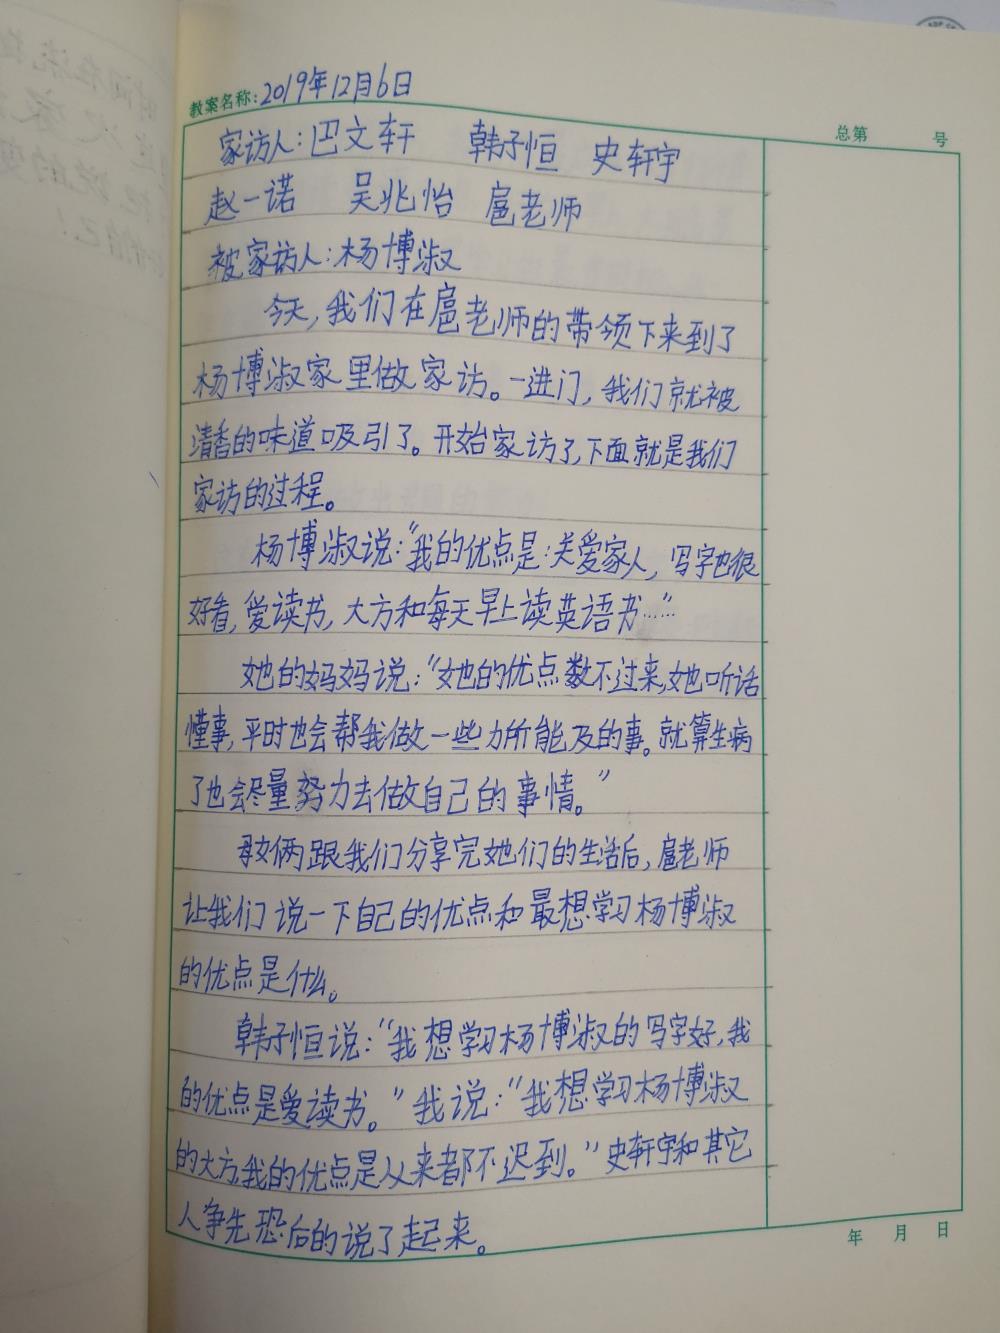 教案名称：2019年12月6日
总第 号
家访人：巴文轩 韩子恒 史轩宇
赵一诺 吴兆怡 扈老师
被家访人：杨博淑
今天，我们在扈老师的带领下来到了
杨博淑家里做家访。一进门，我们就被
清香的味道吸引了。开始家访了，下面就是我们
家访的过程。
杨博淑说：“我的优点是：关爱家人，写字也很
好看，爱读书，大方和每天早上读英语书……”
她的妈妈说：“她的优点数不过来，她听话
懂事，平时也会帮我做一些力所能及的事。就算生病
了也会尽量努力去做自己的事情。”
母女俩跟我们分享完她们的生活后，扈老师
让我们说一下自己的优点和最想学习杨博淑
的优点是什么。
韩子恒说：“我想学习杨博淑的写字好，我
的优点是爱读书。”我说：“我想学习杨博淑
的大方，我的优点是从来都不迟到。”史轩宇和其它
人争先恐后的说了起来。
年 月 日